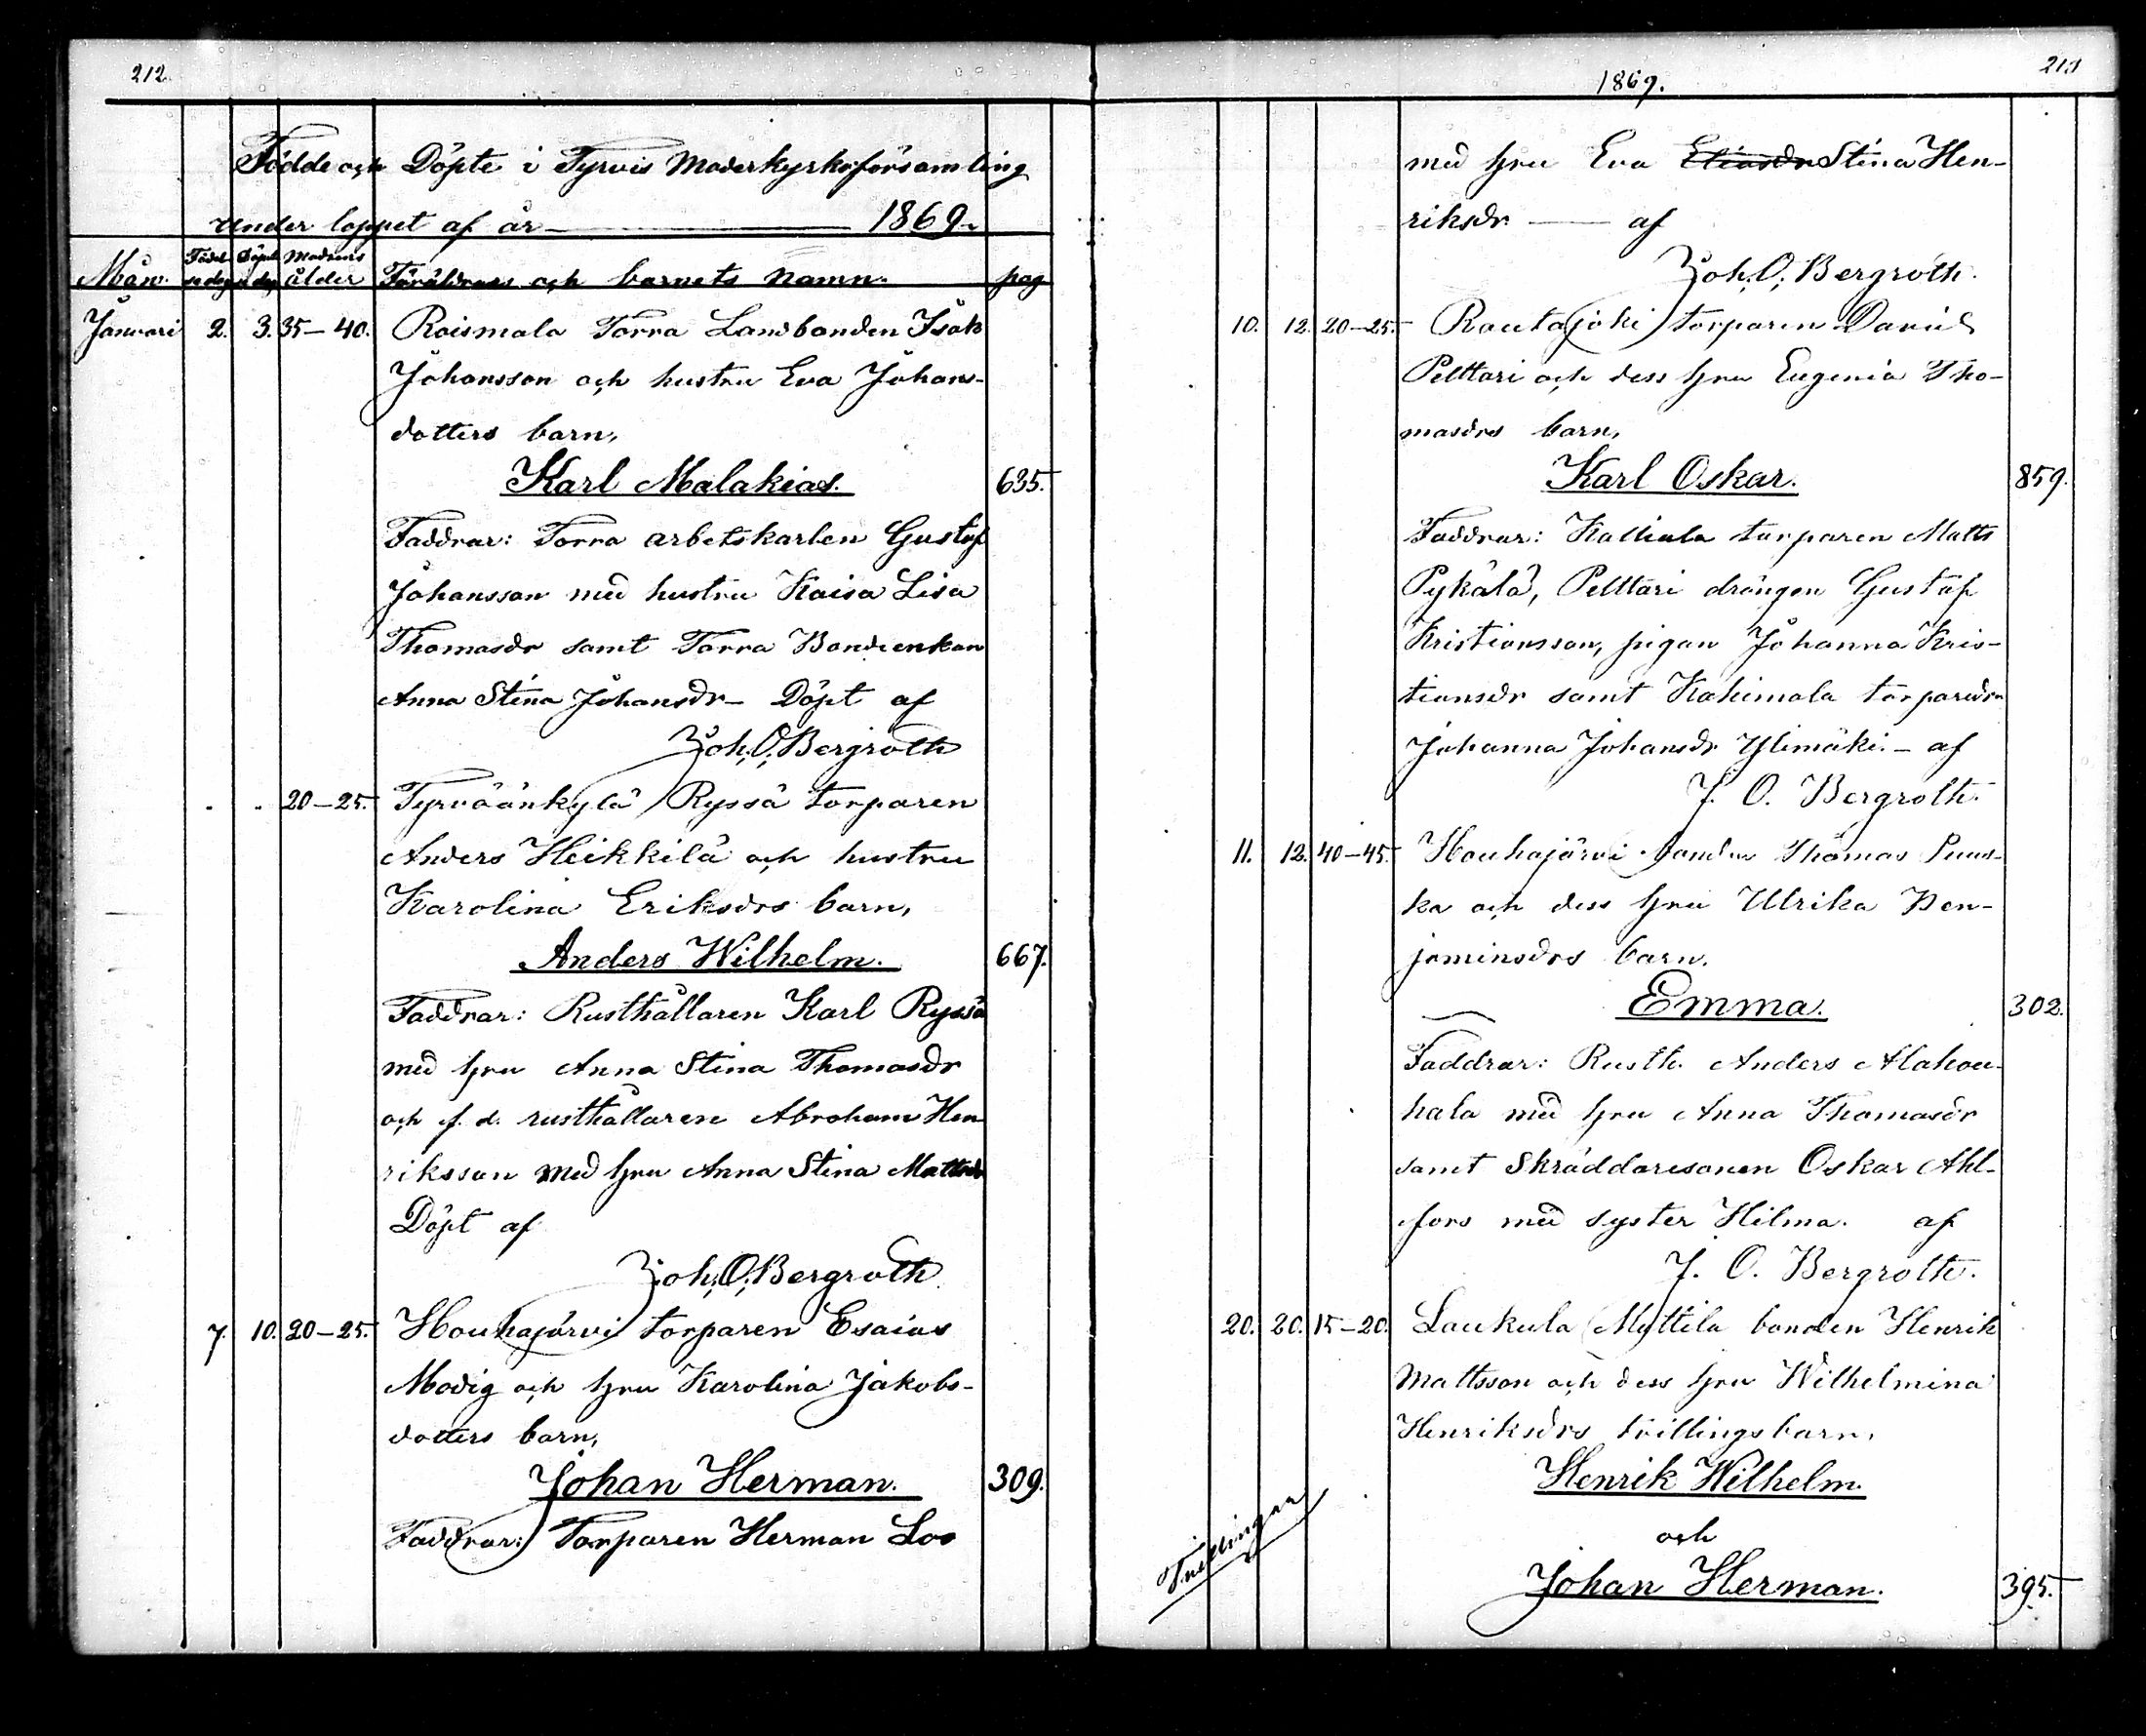 212.
Födde och Döpte i Tyrvis Moderkyrkoförsamling
under loppet af år — 1869.
Mån. Födel-sedag Döpel-sedag Modrens ålder Föräldrars och barnets namn. pag
Januari 2. 3. 35–40. Roismala Torra Landbonden Isak
Johansson och hustru Eva Johans-
dotters barn,
Karl Malakias. 635.
Faddrar: Torra arbetskarlen Gustaf
Johansson med hustru Kaisa Lisa
Thomasdr samt Torra Bondeenkan
Anna Stina Johansdr – Döpt af
Joh. O. Bergroth
" " 20–25. Tyrväänkylä Ryssä torparen
Anders Heikkilä och hustru
Karolina Eriksdrs barn,
Anders Wilhelm. 667.
Faddrar: Rusthållaren Karl Ryssä
med hru Anna Stina Thomasdr
och f. d. rusthållaren Abraham Hen
riksson med hru Anna Stina Mattsdr
Döpt af
Joh. O. Bergroth
7. 10. 20–25. Houhajärvi torparen Esaias
Modig och hru Karolina Jakobs-
dotters barn,
Johan Herman. 309.
Faddrar: Torparen Herman Loo
1869.
213
med hru Eva Eliasdr Stina Hen-
riksdr — af
Joh. O. Bergroth.
10. 12. 20–25. Rautajoki torparen David
Pelttari och dess hru Eugenia Tho-
masdrs barn,
Karl Oskar. 859.
Faddrar: Kalliala torparen Matts
Pykälä, Pelttari drängen Gustaf
Kristiansson, pigan Johanna Kris-
tiansdr samt Kahimala torparedr
Johanna Johansdr Ylimäki. – af
J. O. Bergroth.
11. 12. 40–45. Houhajärvi bonden Thomas Puus-
ka och dess hru Ulrika Ben-
jaminsdrs barn.
Emma. 302.
Faddrar: Rusth. Anders Alahou-
hala med hru Anna Thomasdr
samt Skräddaresonen Oskar Ahl-
fors med syster Hilma. af
J. O. Bergroth.
20. 20. 15–20. Laukula Myttilä bonden Henrik
Mattsson och dess hru Wilhelmina
Henriksdrs tvillingsbarn,
Henrik Wilhelm.
och
Tvillingar
Johan Herman. 395.